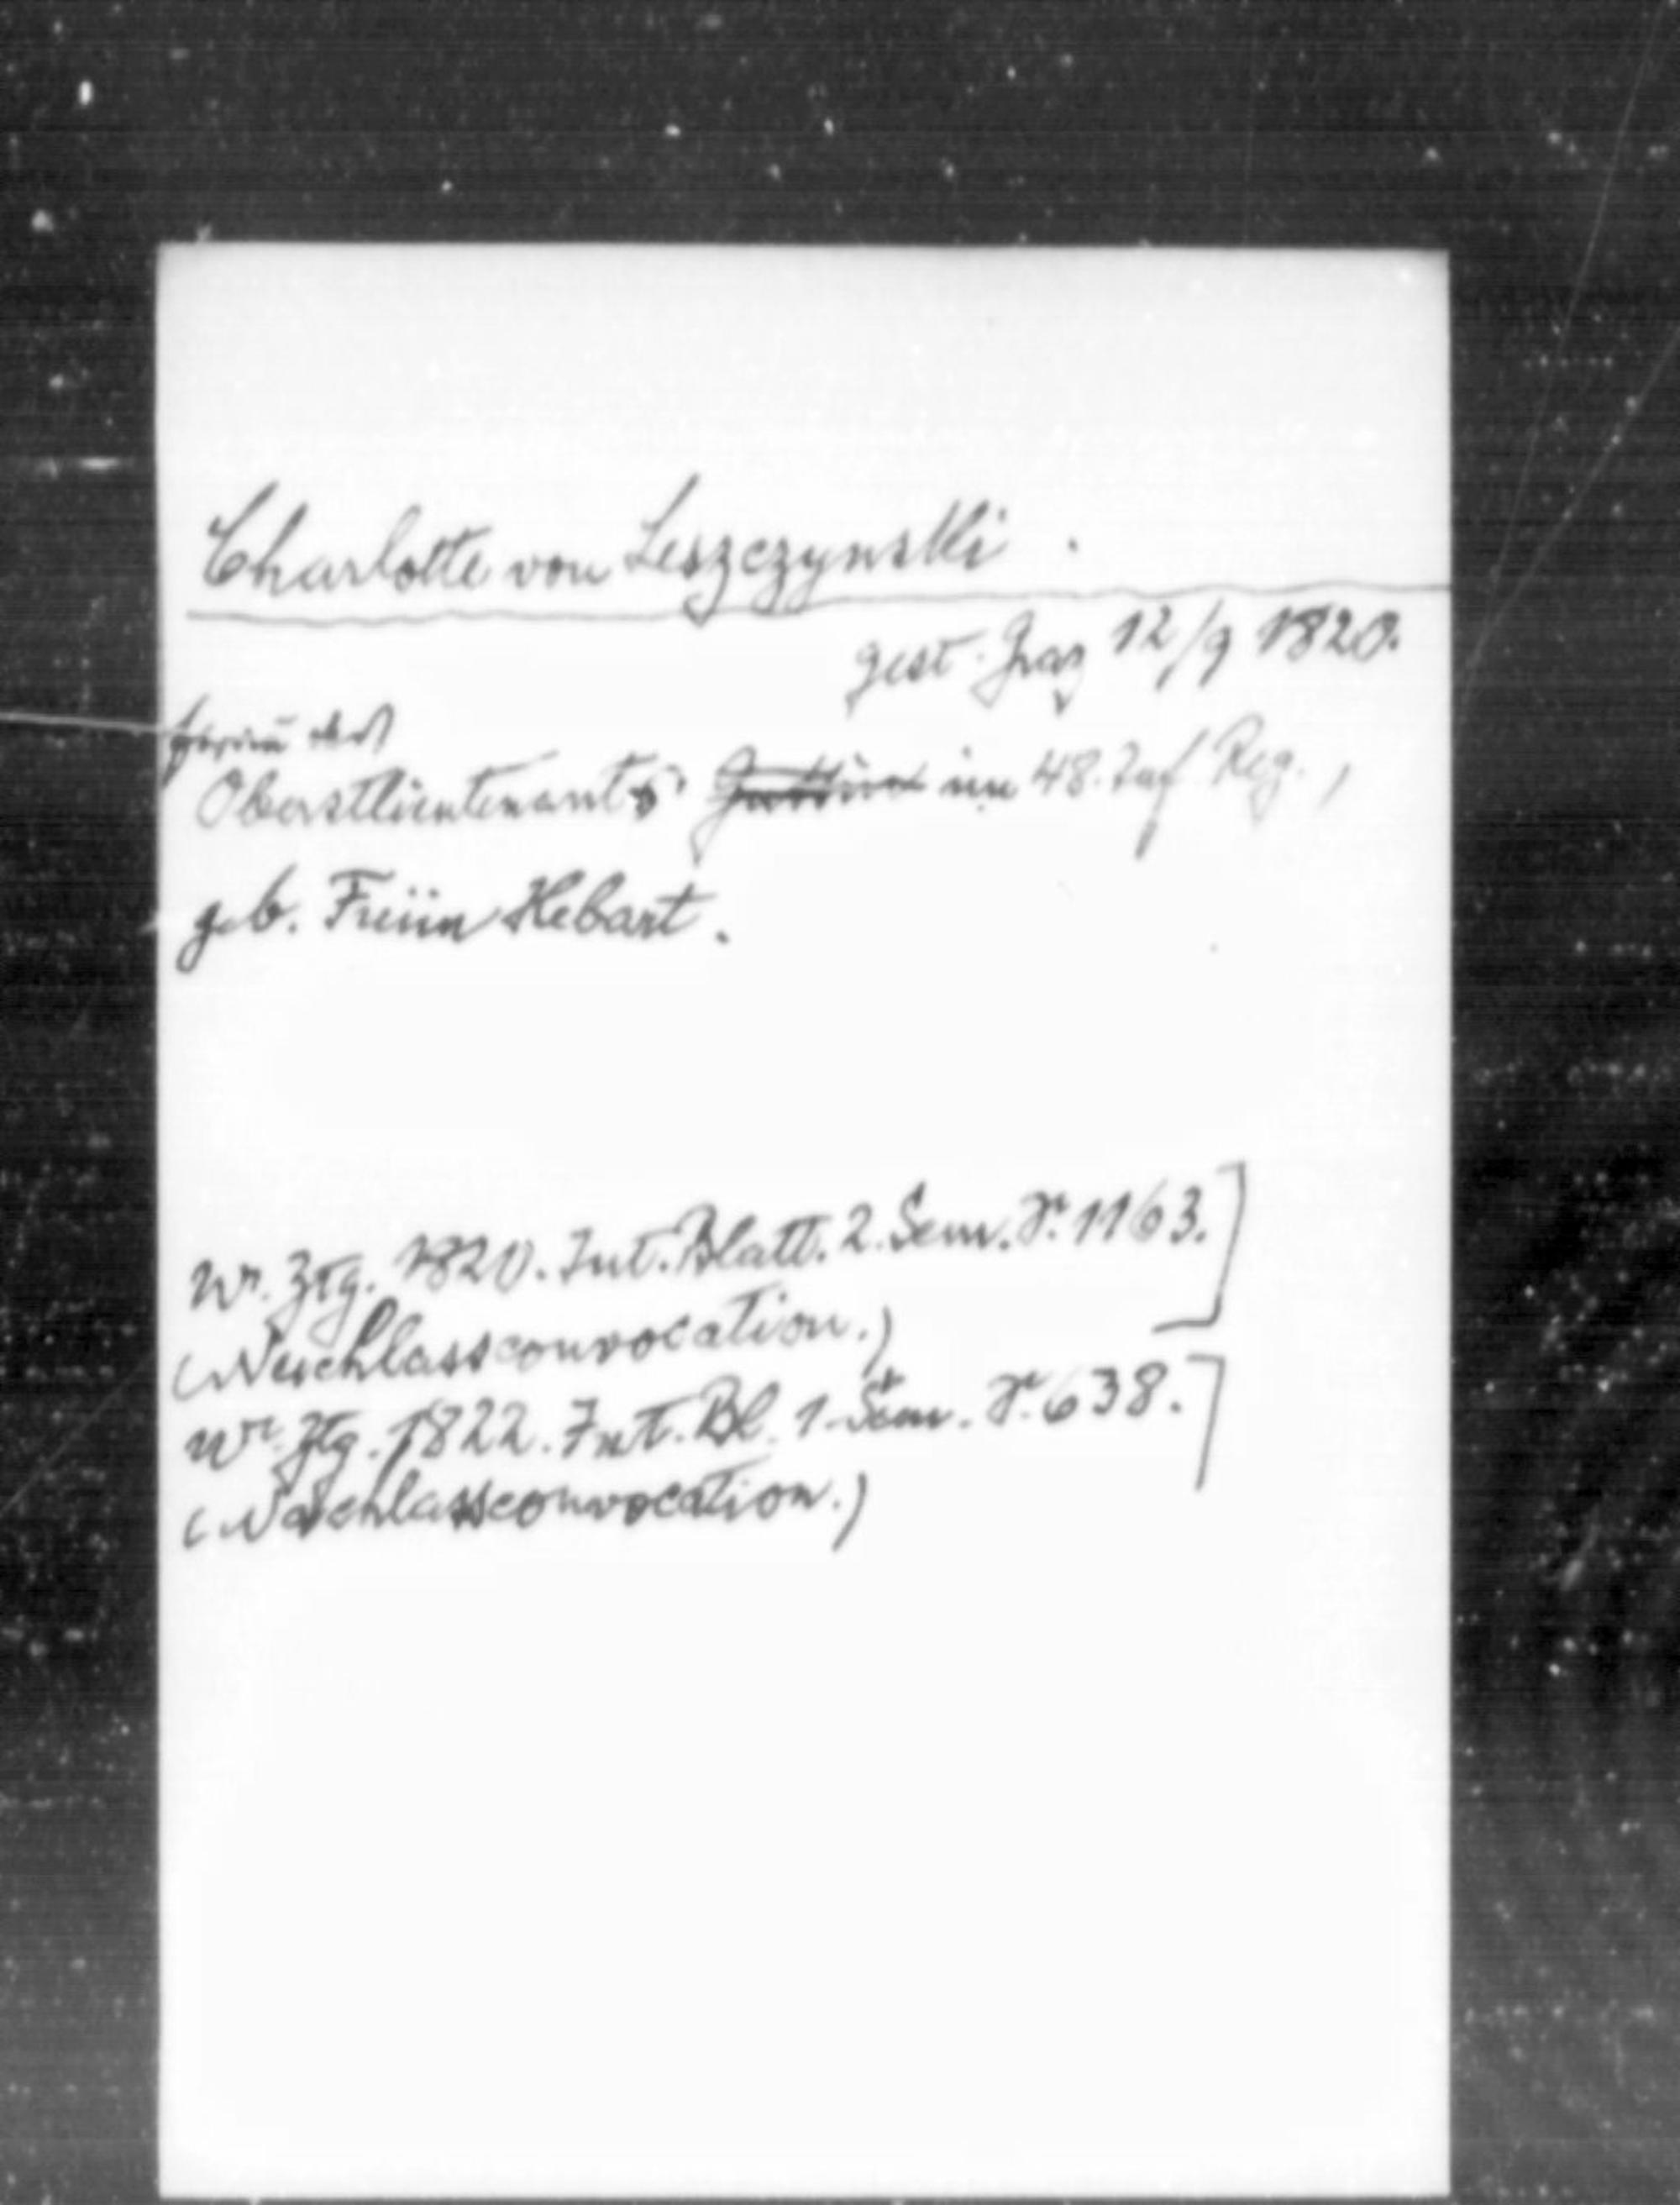 Charlotte von Leszczynski.
gest. Graz 12/9 1820.
des
Oberstlieutenants Gattin im 48. Inf. Reg.,
geb. Freiin Hebart.
Wr. Ztg. 1820. Int. Blatt. 2. Sem. S. 1163.]
(Nachlassconvocation.)
Wr. Ztg. 1822. Int. Bl. 1. Sem. S. 638.]
(Nachlassconvocation.)